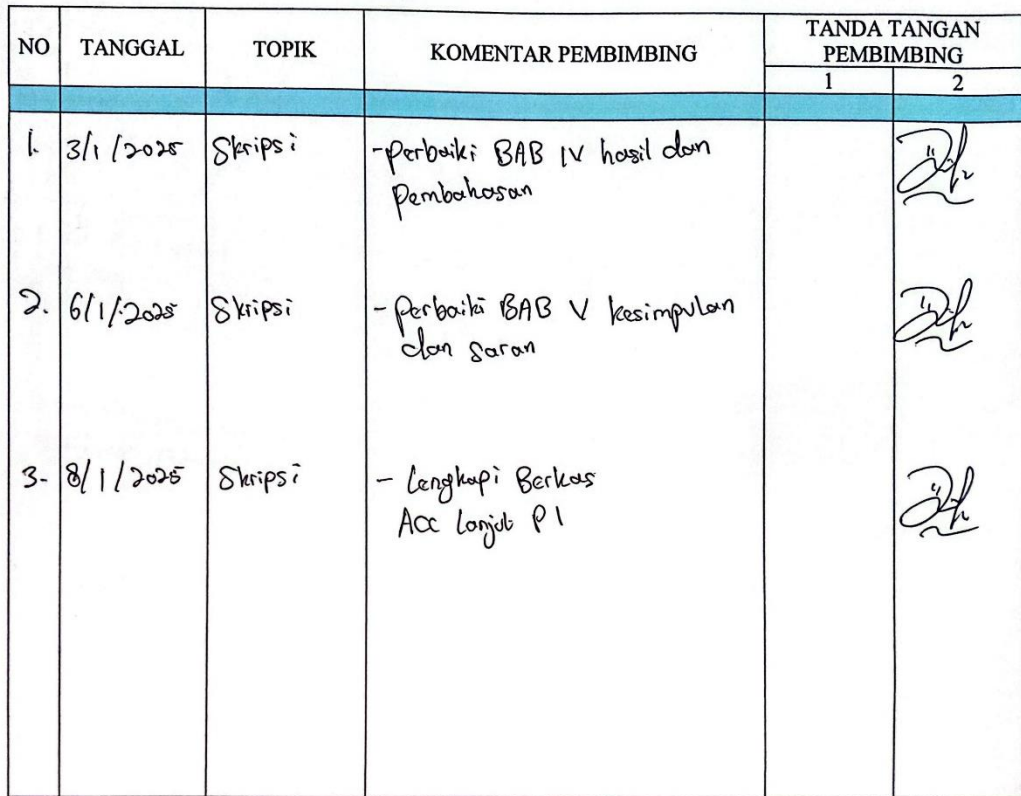 NO TANGGAL TOPIK KOMENTAR PEMBIMBING TANDA TANGAN PEMBIMBING
1 2
1. 3/1/2025 Skripsi - Perbaiki BAB IV hasil dan
Pembahasan
2. 6/1/2025 Skripsi - Perbaiki BAB V kesimpulan
dan saran
3. 8/1/2025 Skripsi - Lengkapi Berkas
Acc Lanjut P1